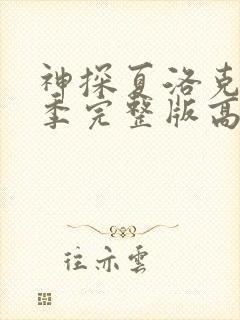 神探夏洛克
季完整版高
往亦雲